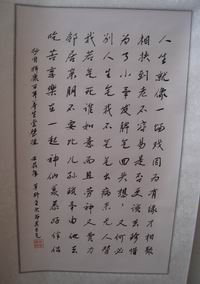 人生就像一场戏因为有缘才相聚
相扶到老不容易是否更该去珍惜
为了小事发脾气回头想想又何必
别人生气我不气气出病来无人替
我若气死谁如意而且劳神又费力
邻居亲朋不要比儿孙琐事由他去
吃苦享乐在一起神仙羡慕好伴侣